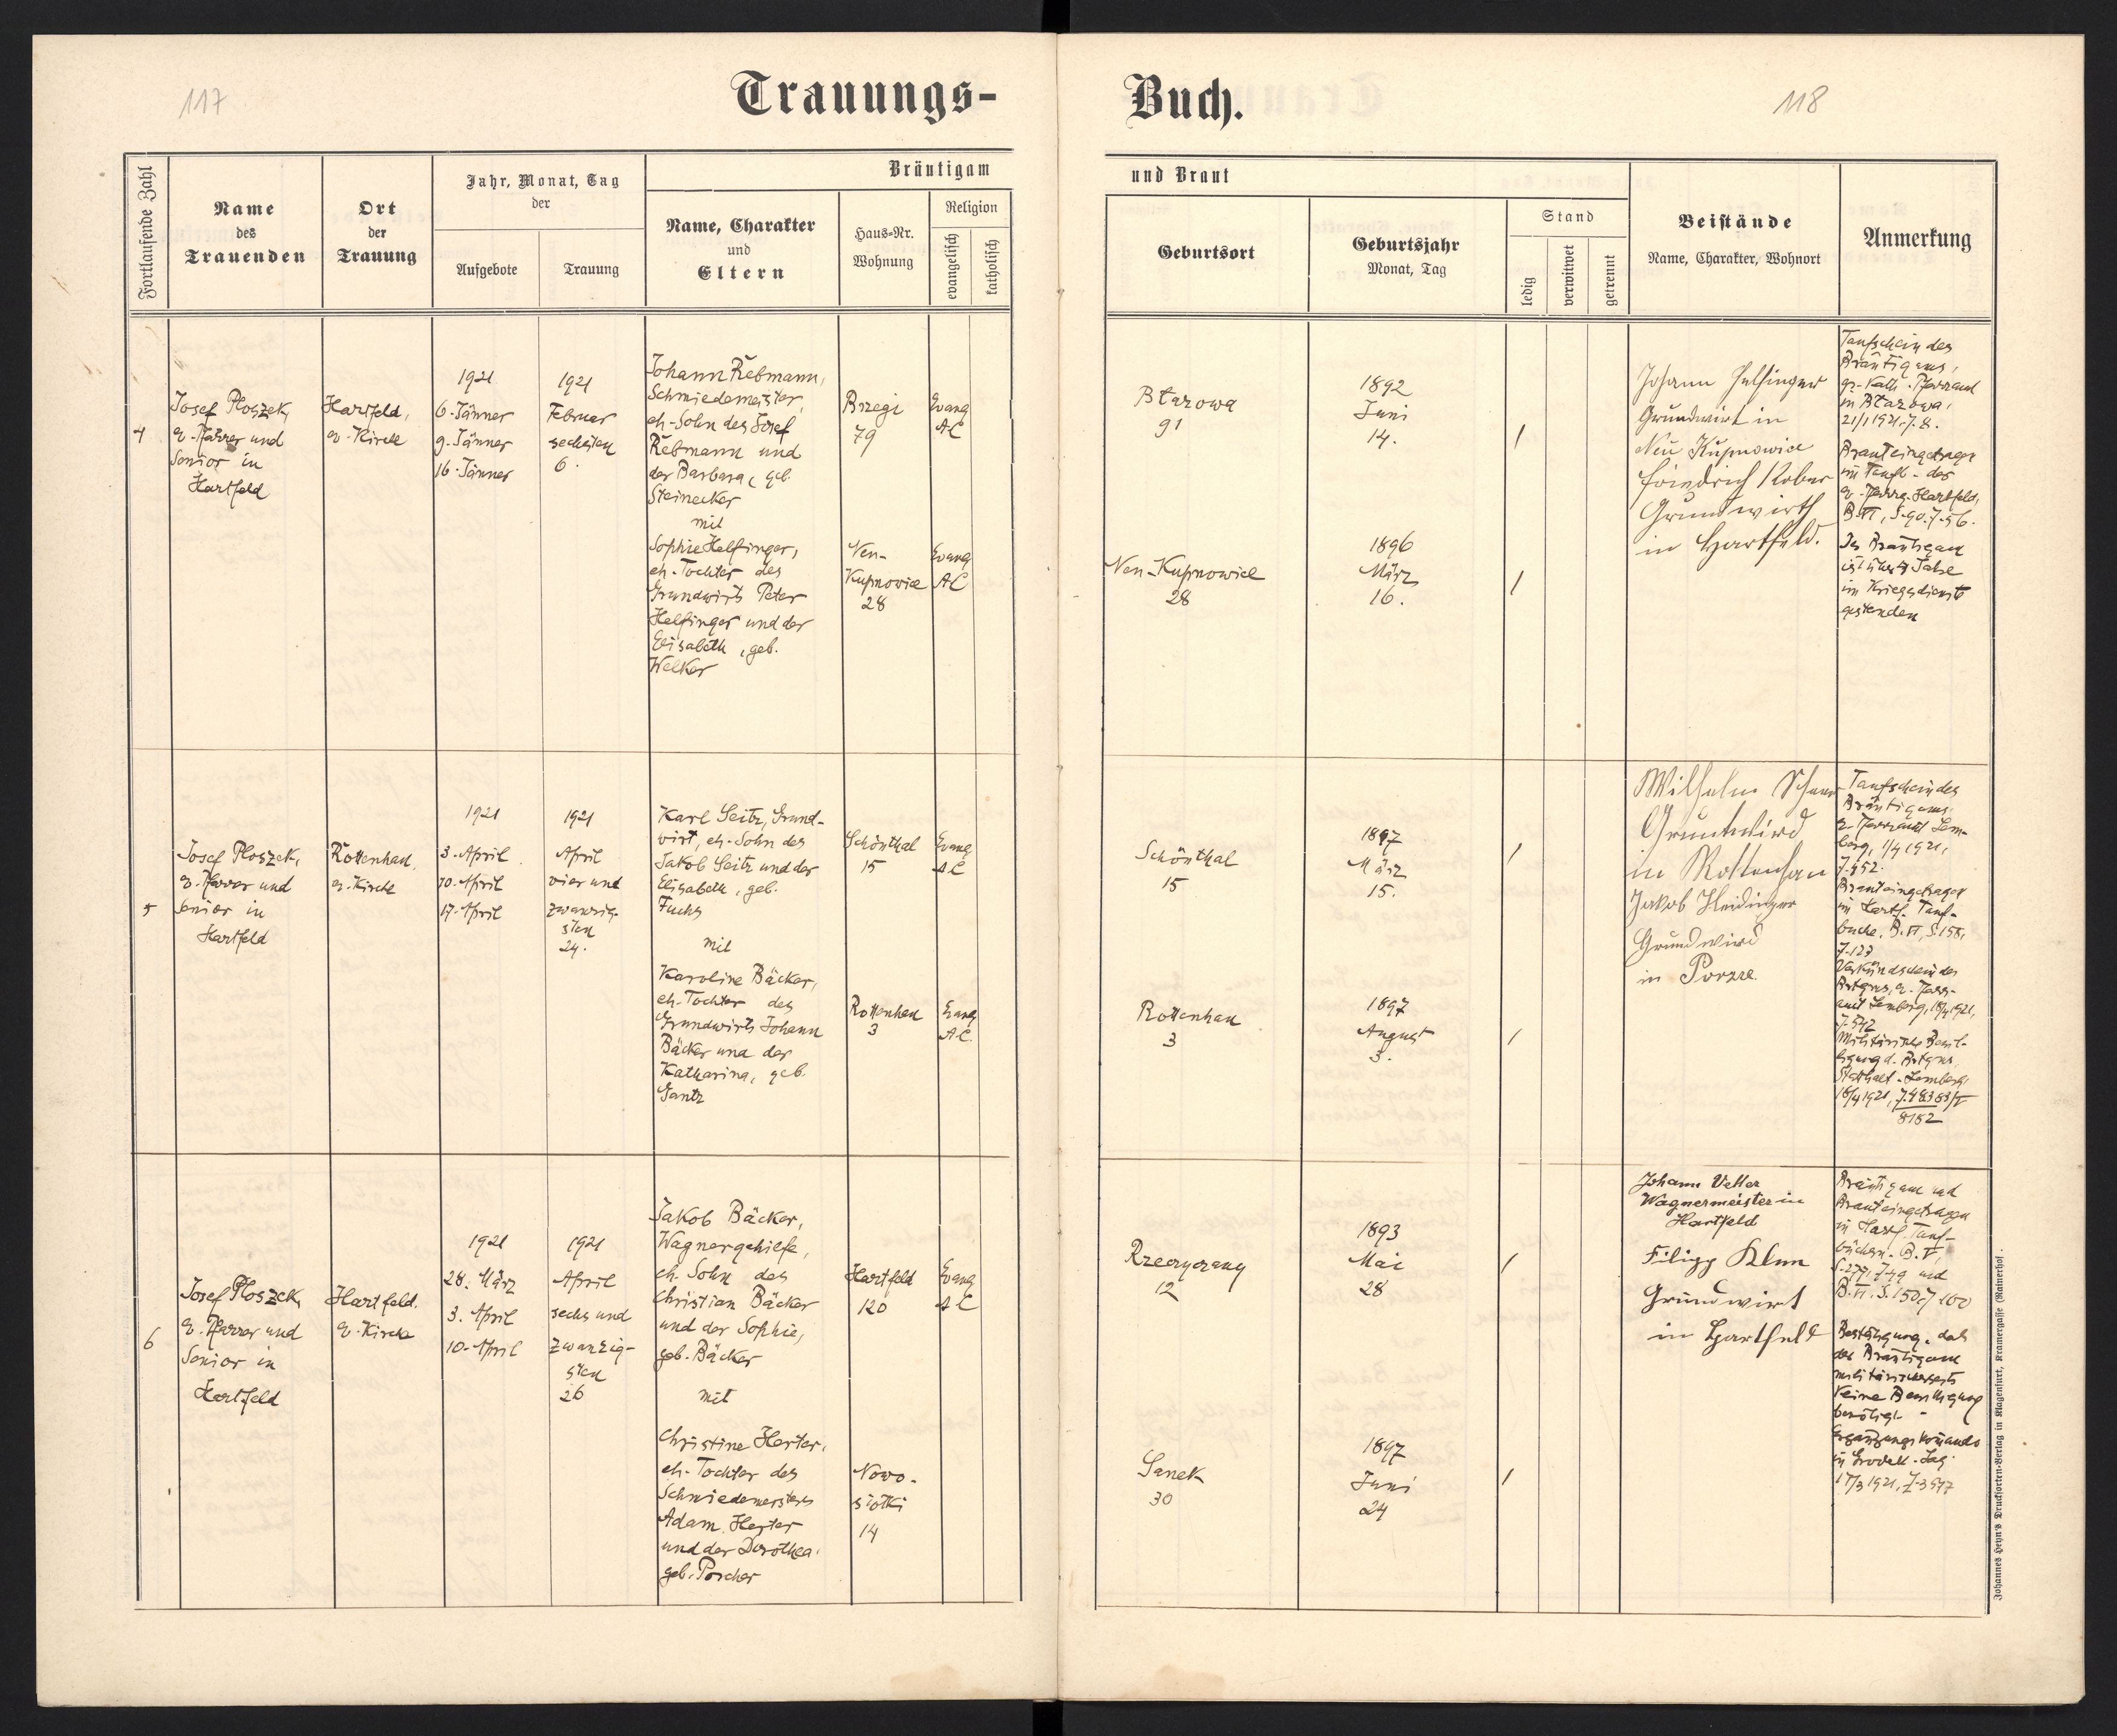 117
Trauungs-
Fortlaufende Zahl
Name
des
Trauenden
Ort
der
Trauung
Jahr, Monat, Tag
der
Aufgebote
Trauung
Bräutigam
Name, Charakter
und
Eltern
Haus-Nr.
Wohnung
Religion
evangelisch
katholisch
4
Josef Ploszek,
ev. Pfarrer und
Senior in
Hartfeld
Hartfeld,
ev. Kirche
1921
6. Jänner
9. Jänner
16. Jänner
1921
Februar
sechsten
6.
Johann Rebmann,
Schmiedemeister,
eh. Sohn des Josef
Rebmann und
der Barbara, geb.
Steinecker
mit
Sophie Helfinger,
eh. Tochter des
Grundwirts Peter
Helfinger und der
Elisabeth, geb.
Welker
Brzegi
79
Neu-
Kupnowice
28
Evang
AC
Evang
AC
5
Josef Ploszek,
ev. Pfarrer und
Senior in
Hartfeld
Rottenhan,
ev. Kirche
1921
3. April
10. April
17. April
1921
April
vier und
zwanzig-
sten
24.
Karl Seitz, Grund-
wirt, eh. Sohn des
Jakob Seitz und der
Elisabeth, geb.
Fuchs
mit
Karoline Bäcker,
eh. Tochter des
Grundwirts Johann
Bäcker und der
Katharina, geb.
Gantz
Schönthal
15
Rottenhan
3
Evang
AC
Evang
AC.
6
Josef Ploszek,
ev. Pfarrer und
Senior in
Hartfeld
Hartfeld.
ev. Kirche
1921
28. März
3. April
10. April
1921
April
sechs und
zwanzig-
sten
26
Jakob Bäcker,
Wagnergehilfe,
eh. Sohn des
Christian Bäcker
und der Sophie,
geb. Bäcker
mit
Christine Herter,
eh. Tochter des
Schmiedemeisters
Adam Herter
und der Dorothea
geb. Porcher
Hartfeld
120
Nowo-
siołki
14
Evang
AC
Buch.
118
und Braut
Geburtsort
Geburtsjahr
Monat, Tag
Stand
ledig
verwitwet
getrennt
Beistände
Name, Charakter, Wohnort
Anmerkung
Błazowa
91
1892
Juni
14.
/
Neu-Kupnowice
28
1896
März
16.
/
Johann Helfinger
Grundwirt in
Neu Kupnowice
Friedrich Kober
Grundwirth
in Hartfeld.
Taufschein des
Bräutigams,
gr.-kath. Pfarramt
in Błazowa,
21/1 1921, Z. 8.
Braut eingetragen
im Taufb. der
ev. Pfarrg. Hartfeld,
B. VI, S. 90. Z. 56.
Der Bräutigam
ist über 4 Jahre
im Kriegsdienste
gestanden
Schönthal
15
1897
März
15.
/
Rottenhan
3
1897
August
3.
/
Wilhelm
Gruntwird
in Rottenhan
Jakob Heidinger
Grundwird
in Porzze
Taufschein des
Bräutigams,
ev. Pfarramt Lem-
berg, 1/4 1921,
Z. 452.
Braut eingetragen
im Hartf. Tauf-
buche, B. VI, S. 158,
Z. 123
Verkündschein des
Brtgms, ev. Pfarr-
amt Lemberg, 18/4 1921,
Z. 542
Militärische Bewil-
ligung d. Brtgms,
Statthalt. Lemberg
18/4 1921, Z. 48383/V
8182
Rzeczyczany
12
1893
Mai
28
/
Sanok
30
1897
Juni
24
/
Johann Vetter
Wagnermeister in
Hartfeld
Filipp Klem
Grundwirt
in Hartfeld
Bräutigam und
Braut eingetragen
in Hartf. Tauf-
büchern. B. V,
S. 277, Z. 49 und
B. VI. S. 150, Z. 100
Bestätigung, daß
der Bräutigam
militärischerseits
keine Bewilligung
benötigt -
Ergänzungskomando
in Grodek-Jag.
17/3 1921, Z. 3517
Johannes Heyn's Drucksorten-Verlag in Klagenfurt, Kramergasse (Rainerhof.